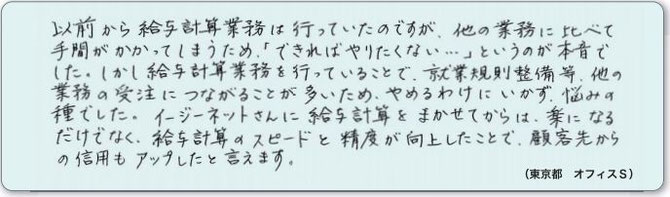 以前から給与計算業務は行っていたのですが、他の業務に比べて
手間がかかってしまうため、「できればやりたくない…」というのが本音で
した。しかし給与計算業務を行っていることで、就業規則整備等、他の
業務の受注につながることが多いため、やめるわけにいかず、悩みの
種でした。イージーネットさんに給与計算をまかせてからは、楽になる
だけでなく、給与計算のスピードと精度が向上したことで、顧客先から
の信用もアップしたと言えます。
（東京都　オフィスＳ）